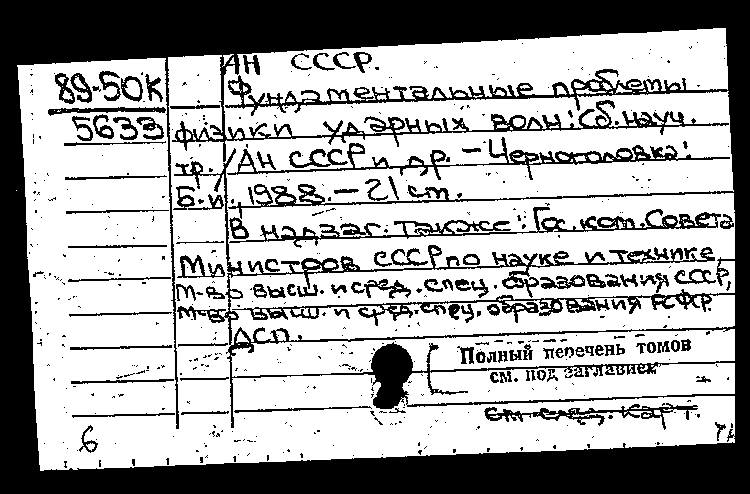 АН СССР.
89-50К Фундаментальные проблемы
5633 физики ударных волн: Сб. науч.
тр. / АН СССР и др. – Черноголовка:
Б. и., 1988. – 21 ст.
В надзаг. также: Гос. ком. Совета
Министров СССР по науке и технике,
М-во высш. и сред. спец. образования СССР,
М-во высш. и сред. спец. образования РСФСР.
ДСП.
Полный перечень томов
см. под заглавием
См. след. карт.
6